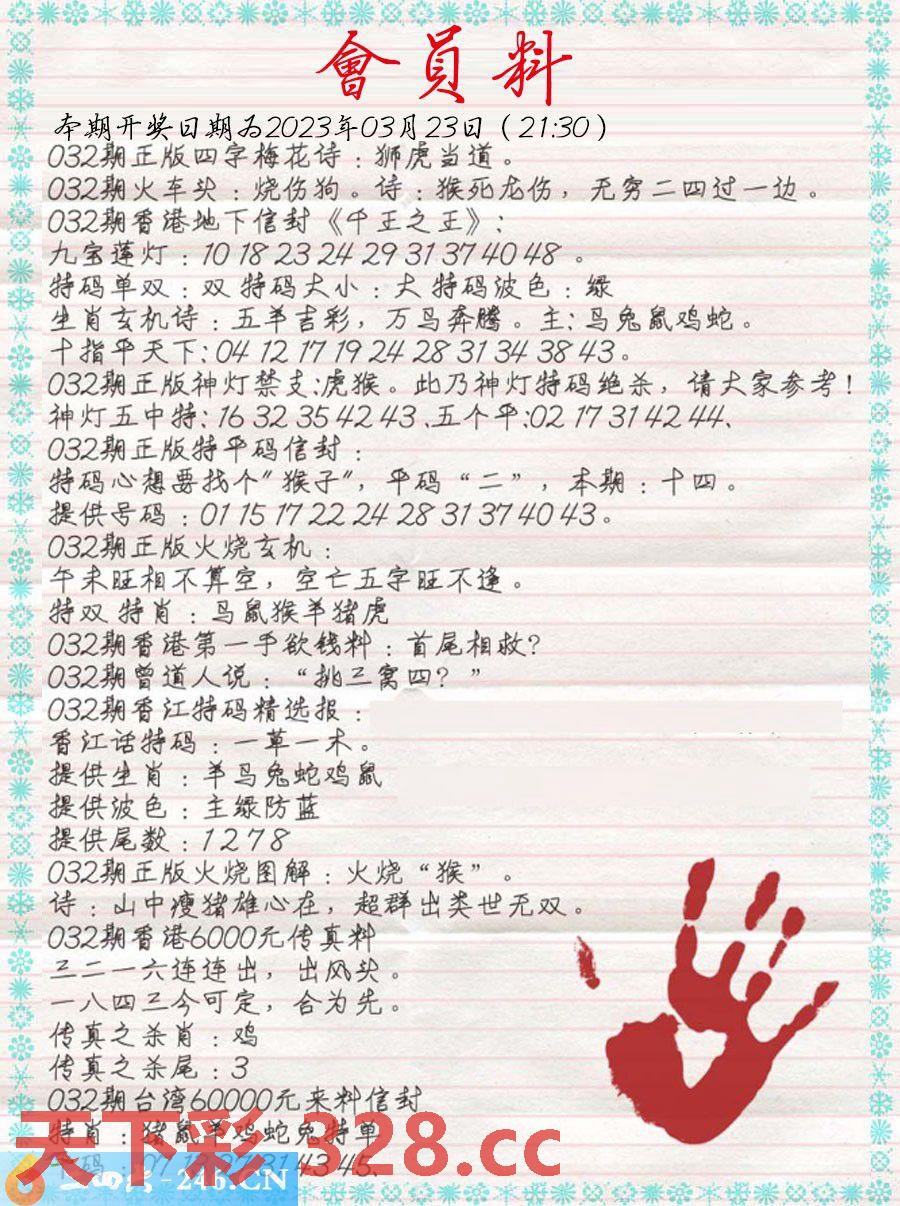 會員料
本期开奖日期为2023年03月23日（21:30）
032期正版四字梅花诗：狮虎当道。
032期火车头：烧伤狗。诗：猴死龙伤，无穷二四过一边。
032期香港地下信封《千王之王》：
九宝莲灯：10 18 23 24 29 31 37 40 48 。
特码单双：双 特码大小：大 特码波色：绿
生肖玄机诗：五羊吉彩，万马奔腾。主：马兔鼠鸡蛇。
十指平天下：04 12 17 19 24 28 31 34 38 43。
032期正版神灯禁支：虎猴。此乃神灯特码绝杀，请大家参考！
神灯五中特：16 32 35 42 43 、五个平：02 17 31 42 44、
032期正版特平码信封：
特码心想要找个"猴子"，平码“二”，本期：十四。
提供号码：01 15 17 22 24 28 31 37 40 43。
032期正版火烧玄机：
午未旺相不算空，空亡五字旺不逢。
特双 特肖：马鼠猴羊猪虎
032期香港第一手欲钱料：首尾相救？
032期曾道人说：“挑三窝四？”
032期香江特码精选报：
香江话特码：一草一木。
提供生肖：羊马兔蛇鸡鼠
提供波色：主绿防蓝
提供尾数：1 2 7 8
032期正版火烧图解：火烧“猴”。
诗：山中瘦猪雄心在，超群出类世无双。
032期香港6000元传真料
三二一六连连出，出风头。
一八四三今可定，合为先。
传真之杀肖：鸡
传真之杀尾：3
032期台湾60000元来料信封
特肖：猪鼠羊鸡蛇兔特单
天下彩 328.cc
43 45、
-246.CN